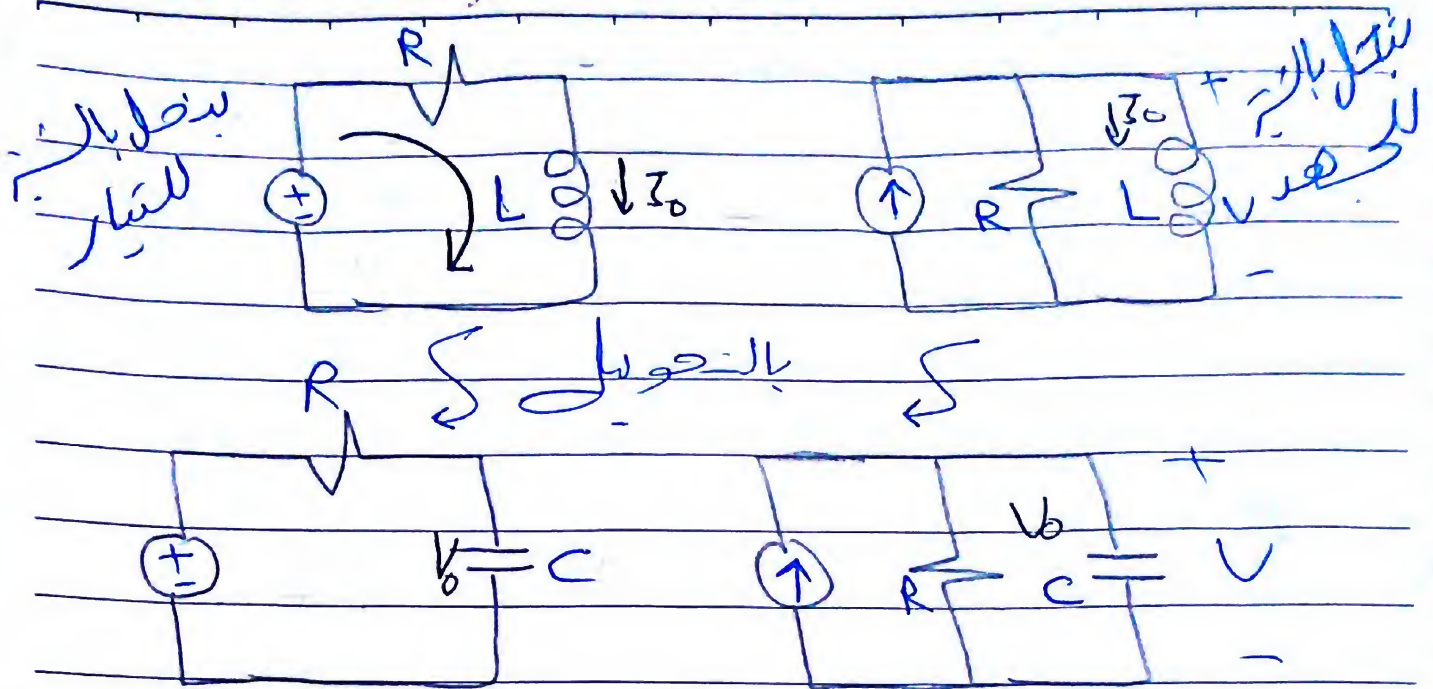 R
بنحل بالنسبة
للتيار
±
L
↓ I₀
↑
R
↓I₀
L
+
V
-
بنحل بالنسبة
للجهد
بالتحويل
R
±
V₀
C
↑
R
V₀
C
+
V
-